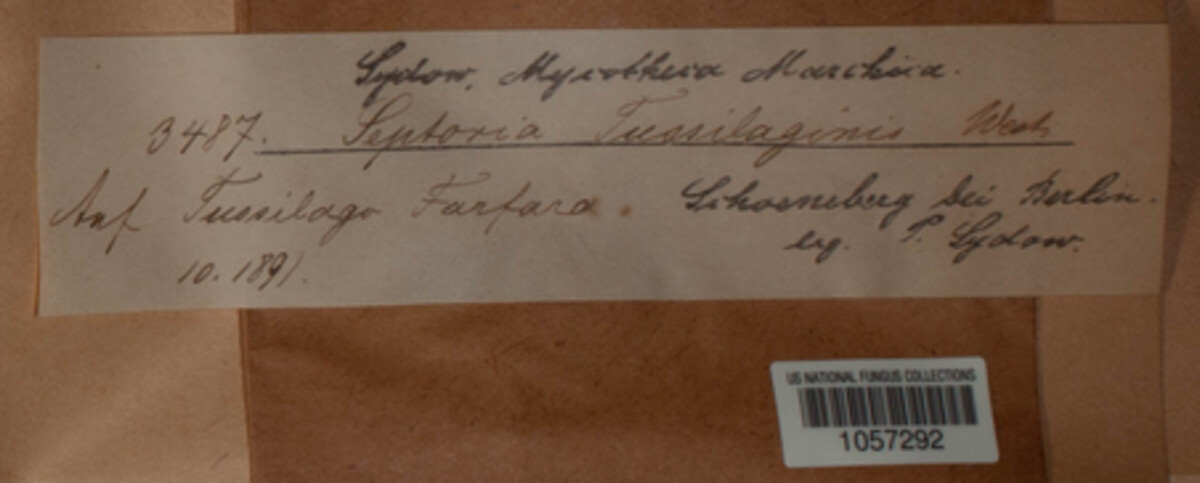 Sydow, Mycotheca Marchica.
3487. Septoria Tussilaginis West.
Auf Tussilago Farfara. Schoeneberg bei Berlin.
10. 1891. leg. P. Sydow.
US NATIONAL FUNGUS COLLECTIONS
1057292